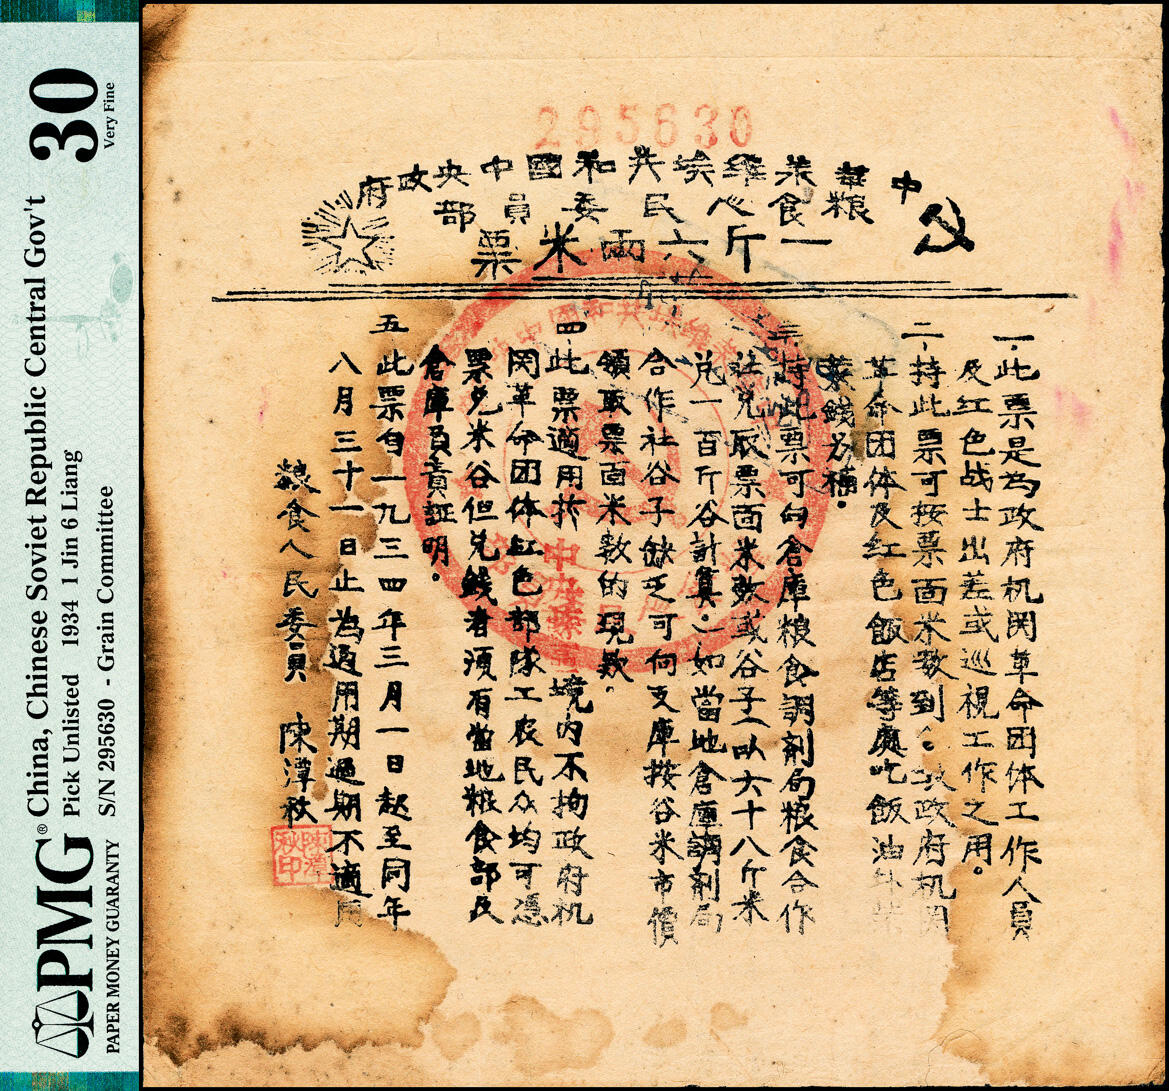 PMG® PAPER MONEY GUARANTY
China, Chinese Soviet Republic Central Gov't
Pick Unlisted 1934 1 Jin 6 Liang
S/N 295630 - Grain Committee
30
Very Fine
295630
中華苏維埃共和國中央政府
粮食人民委員部
一斤六兩米票
一.此票是為政府机関革命团体工作人員
及红色战士出差或巡視工作之用。
二.持此票可按票面米数到政府机関
革命团体及红色飯店等處吃飯油柴
菜錢另補。
三.持此票可向倉庫粮食調剂局粮食合作
社兑取票面米数或谷子(以六十八斤米
兑一百斤谷計算。)如當地倉庫調剂局
合作社谷子缺乏可向支庫按谷米市價
領取票面米数的現款。
四.此票適用扵中央蘇區境内不拘政府机
関革命团体红色部隊工农民众均可憑
票兑米谷但兑錢者須有當地粮食部及
倉庫負責証明。
五.此票自一九三四年三月一日起至同年
八月三十一日止為適用期過期不適用
粮食人民委員 陳潭秋
陳潭秋印